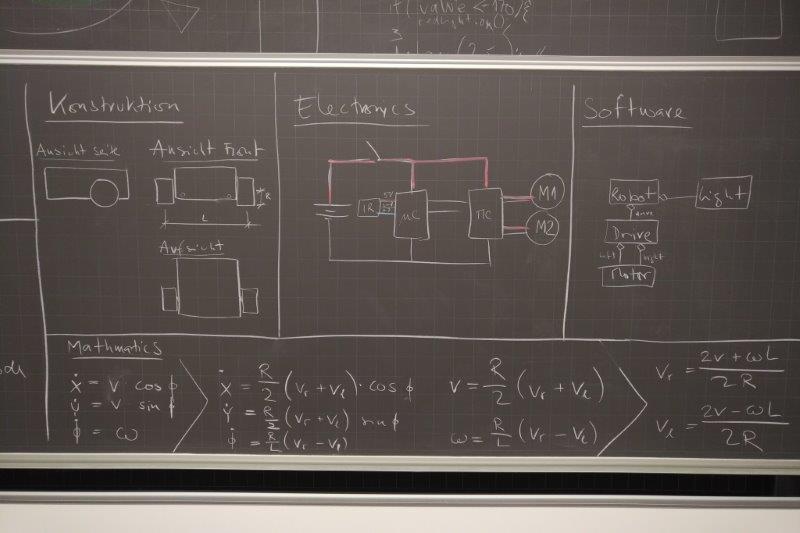 if( value <170){
redLight.on();
}
Konstruktion
Ansicht Seite
Ansicht Front
R
L
Aufsicht
Electronics
IR
5V
µC
MC
M1
M2
Software
Robot
Light
drive
Drive
left
right
Motor
Mathmatics
ẋ = v cos ϕ
ẏ = v sin ϕ
ϕ̇ = ω
ẋ = R/2 (vr + vl) · cos ϕ
ẏ = R/2 (vr + vl) sin ϕ
ϕ̇ = R/L (vr − vl)
v = R/2 (vr + vl)
ω = R/L (vr − vl)
vr = 2v + ωL / 2R
vl = 2v − ωL / 2R